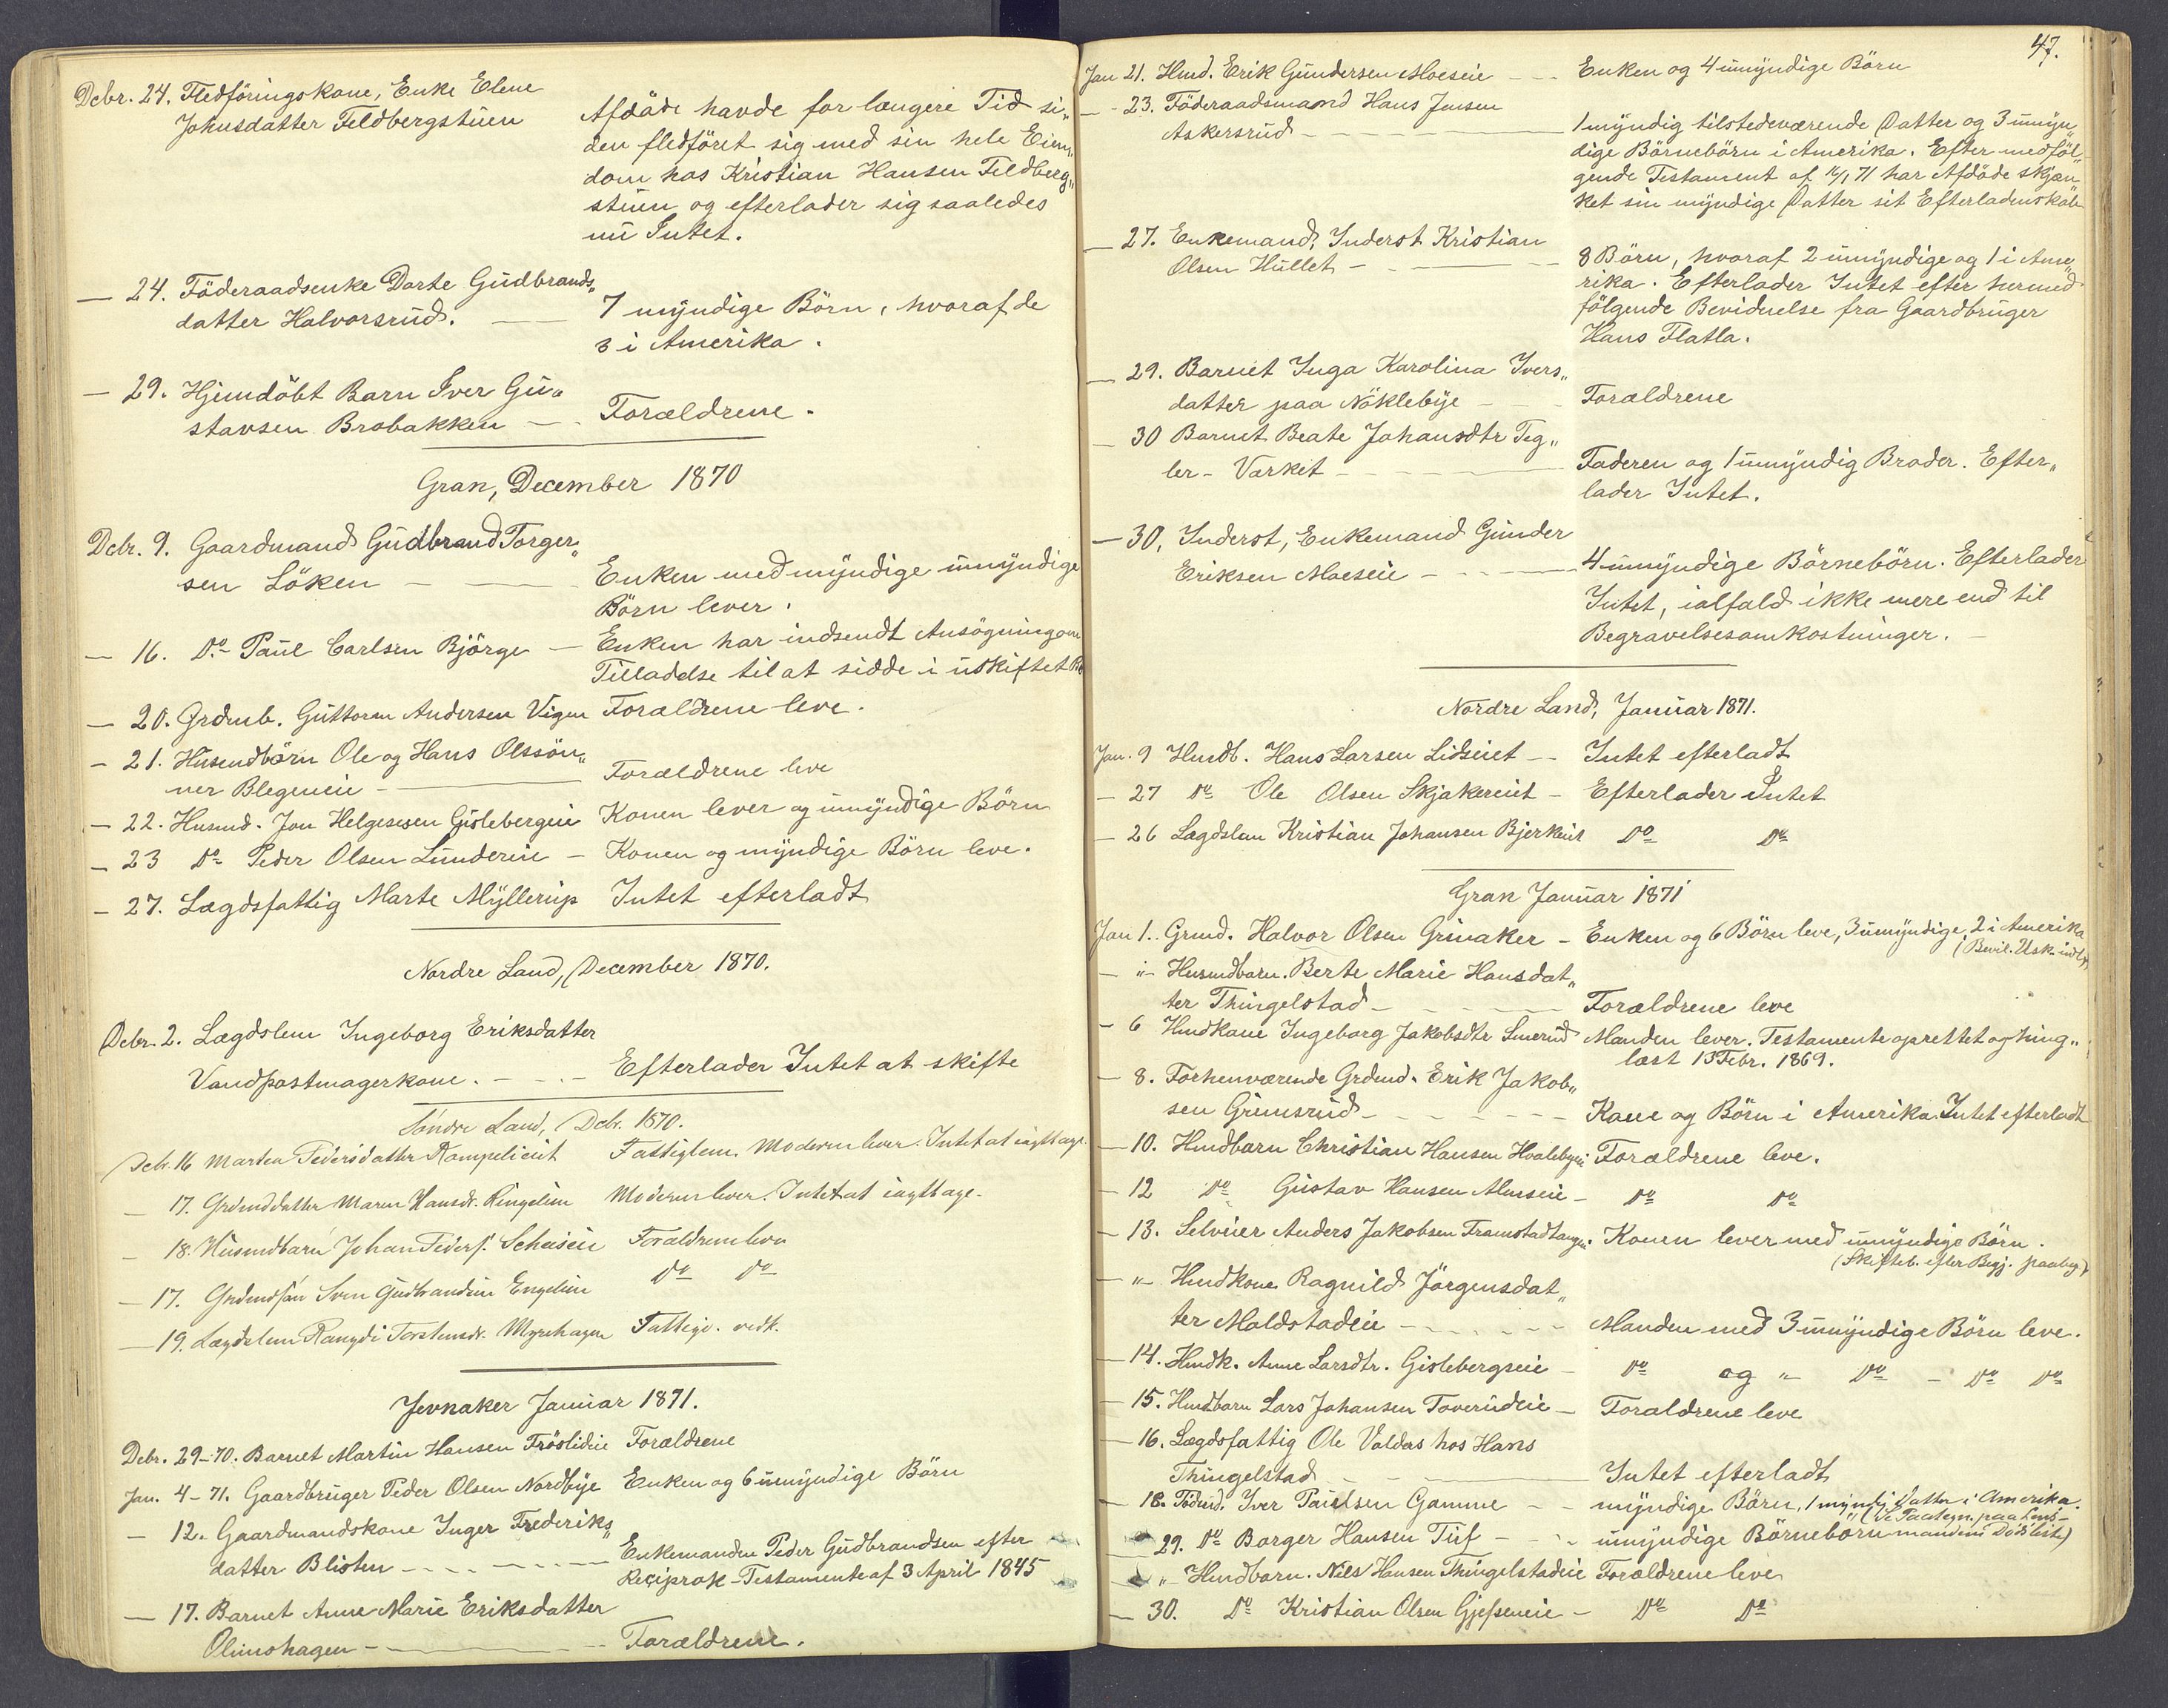 Debr. 24. Fledföringskone, Enke Elene
Johnsdatter Feldbergstuen
Afdöde havde for længere Tid si„
den fledföret sig med sin hele Eien„
dom hos Kristian Hansen Feldberg„
stuen og efterlader sig saaledes
nu Intet.
— 24. Föderaadsenke Dorte Gudbrands„
datter Halvorsrud. —
7 myndige Börn, hvoraf de
3 i Amerika.
— 29. Hjemdöbt Barn Iver Gu„
stavsen Brobakken — -
Forældrene.
Gran, December 1870
Debr. 9. Gaardmand Gudbrand Torger„
sen Löken — —
Enken med myndige umyndige
Börn lever.
— 16. Do Paul Carlsen Björge —
Enken har indsendt Ansögning om
Tilladelse til at sidde i uskiftet Bo
— 20. Grdmb. Guttorm Andersen Vigen Forældrene leve.
— 21. Husmdbörn Ole og Hans Olssön„
ner Blegeneie - —
Forældrene leve
— 22. Husmd. Jon Helgesen Gislebergeie Konen lever og umyndige Börn
— 23 Do Peder Olsen Lundereie — Konen og myndige Börn leve.
— 27. Lægdsfattig Marte Myllerup Intet efterladt
Nordre Land, December 1870.
Debr. 2. Lægdslem Ingeborg Eriksdatter
Vandpostmagerkone. - - - Efterlader Intet at skifte
Söndre Land, Debr. 1870.
Debr. 16 Marthea Pedersdatter Rompelieiet Fattiglem. Moderen lever. Intet at iagttage.
— 17. Grdmddatter Maren Hansdr. Ringelien Moderen lever. Intet at iagttage.
— 18. Husmdbarn Johan Peders. Scheieie Forældrene leve
— 17. Grdmdsön Sven Gudbrandsen Engelien Do Do
— 19. Lægdslem Rangdi Torstensdr. Myrehagen Fattigv. vedk.
Jevnaker Januar 1871.
Debr. 29-70. Barnet Martin Hansen Fröslideie Forældrene
Jan. 4-71. Gaardbruger Peder Olsen Nordbye Enken og 6 umyndige Börn
— 12. Gaardmandskone Inger Frederiks„
datter Blisten - - - - —
Enkemanden Peder Gudbrandsen efter
Reciprok-Testamente af 3 April 1845
— 17. Barnet Anne Marie Eriksdatter
Olimshagen - — - - Forældrene.
47.
Jan 21. Hmd. Erik Gundersen Moeseie - - - Enken og 4 umyndige Börn
— 23. Föderaadsmand Hans Jensen
Askersrud - - - —
1 myndig tilstedeværende Datter og 3 umyn„
dige Börnebörn i Amerika. Efter medföl„
gende Testament af 71 har Afdöde skjæn„
ket sin myndige Datter sit Efterladenskab
— 27. Enkemand, Inderst Kristian
Olsen Hullet - - — - -
8 Börn, hvoraf 2 umyndige og 1 i Ame„
rika. Efterlader Intet efter hermed
fölgende Bevidnelse fra Gaardbruger
Hans Flatla.
— 29. Barnet Inga Karolina Ivers„
datter paa Nöklebye - - -
Forældrene
— 30 Barnet Beate Johansdtr Teg„
ler-Værket - - - —
Faderen og 1 umyndig Broder. Efter„
lader Intet.
— 30, Inderst, Enkemand Gunder
Eriksen Moeseie - - - —
4 umyndige Börnebörn. Efterlader
Intet, ialfald ikke mere end til
Begravelsesomkostninger. -
Nordre Land, Januar 1871.
Jan. 9 Hmdb. Hans Larsen Lidseiet - - Intet efterladt
— 27 Do Ole Olsen Skjakereiet - Efterlader Intet
— 26 Lægdslem Kristian Johansen Bjerkeiet Do Do
Gran Januar 1871
Jan 1. Grmd. Halvor Olsen Grinaker - Enken og 6 Börn leve, 3 umyndige, 2 i Amerika
(Bevil. Usk. indl.)
— „ Husmdbarn. Berte Marie Hansdat„
ter Thingelstad - - - - Forældrene leve
— 6 Hmdkone Ingeborg Jakobsdtr Smerud Manden lever. Testamente oprettet og ting„
læst 13 Febr. 1869.
— 8. Forhenværende Grdmd. Erik Jakob„
sen Grimsrud - - - - - Kone og Börn i Amerika. Intet efterladt
— 10. Hmdbarn Christian Hansen Hvalebyeie Forældrene leve.
— 12 Do Gustav Hansen Almseie - Do Do
— 13. Selveier Anders Jakobsen Framstadtangen. Konen lever med umyndige Börn.
(Skifteb. efter Begj. paabeg.)
— „ Hmdkone Ragnild Jörgensdat„
ter Moldstadeie - - - - - Manden med 3 umyndige Börn leve.
— 14. Hmdk. Anne Larsdtr. Gislebergseie - Do og „ Do - Do Do
— 15. Hmdbarn Lars Johansen Toverudeie - Forældrene leve
— 16. Lægdsfattig Ole Valders hos Hans
Thingelstad - - — Intet efterladt
— 18. Födmd. Iver Paulsen Gamme - - myndige Börn, 1 myndig Datter i Amerika.
(Se Paategn. paa Lens-
mandens Dödsliste)
— 29. Do Borger Hansen Tuf - - umyndige Börnebörn
— „ Hmdbarn. Nils Hansen Thingelstadeie Forældrene leve
— 30. Do Kristian Olsen Gjefseneie - Do Do